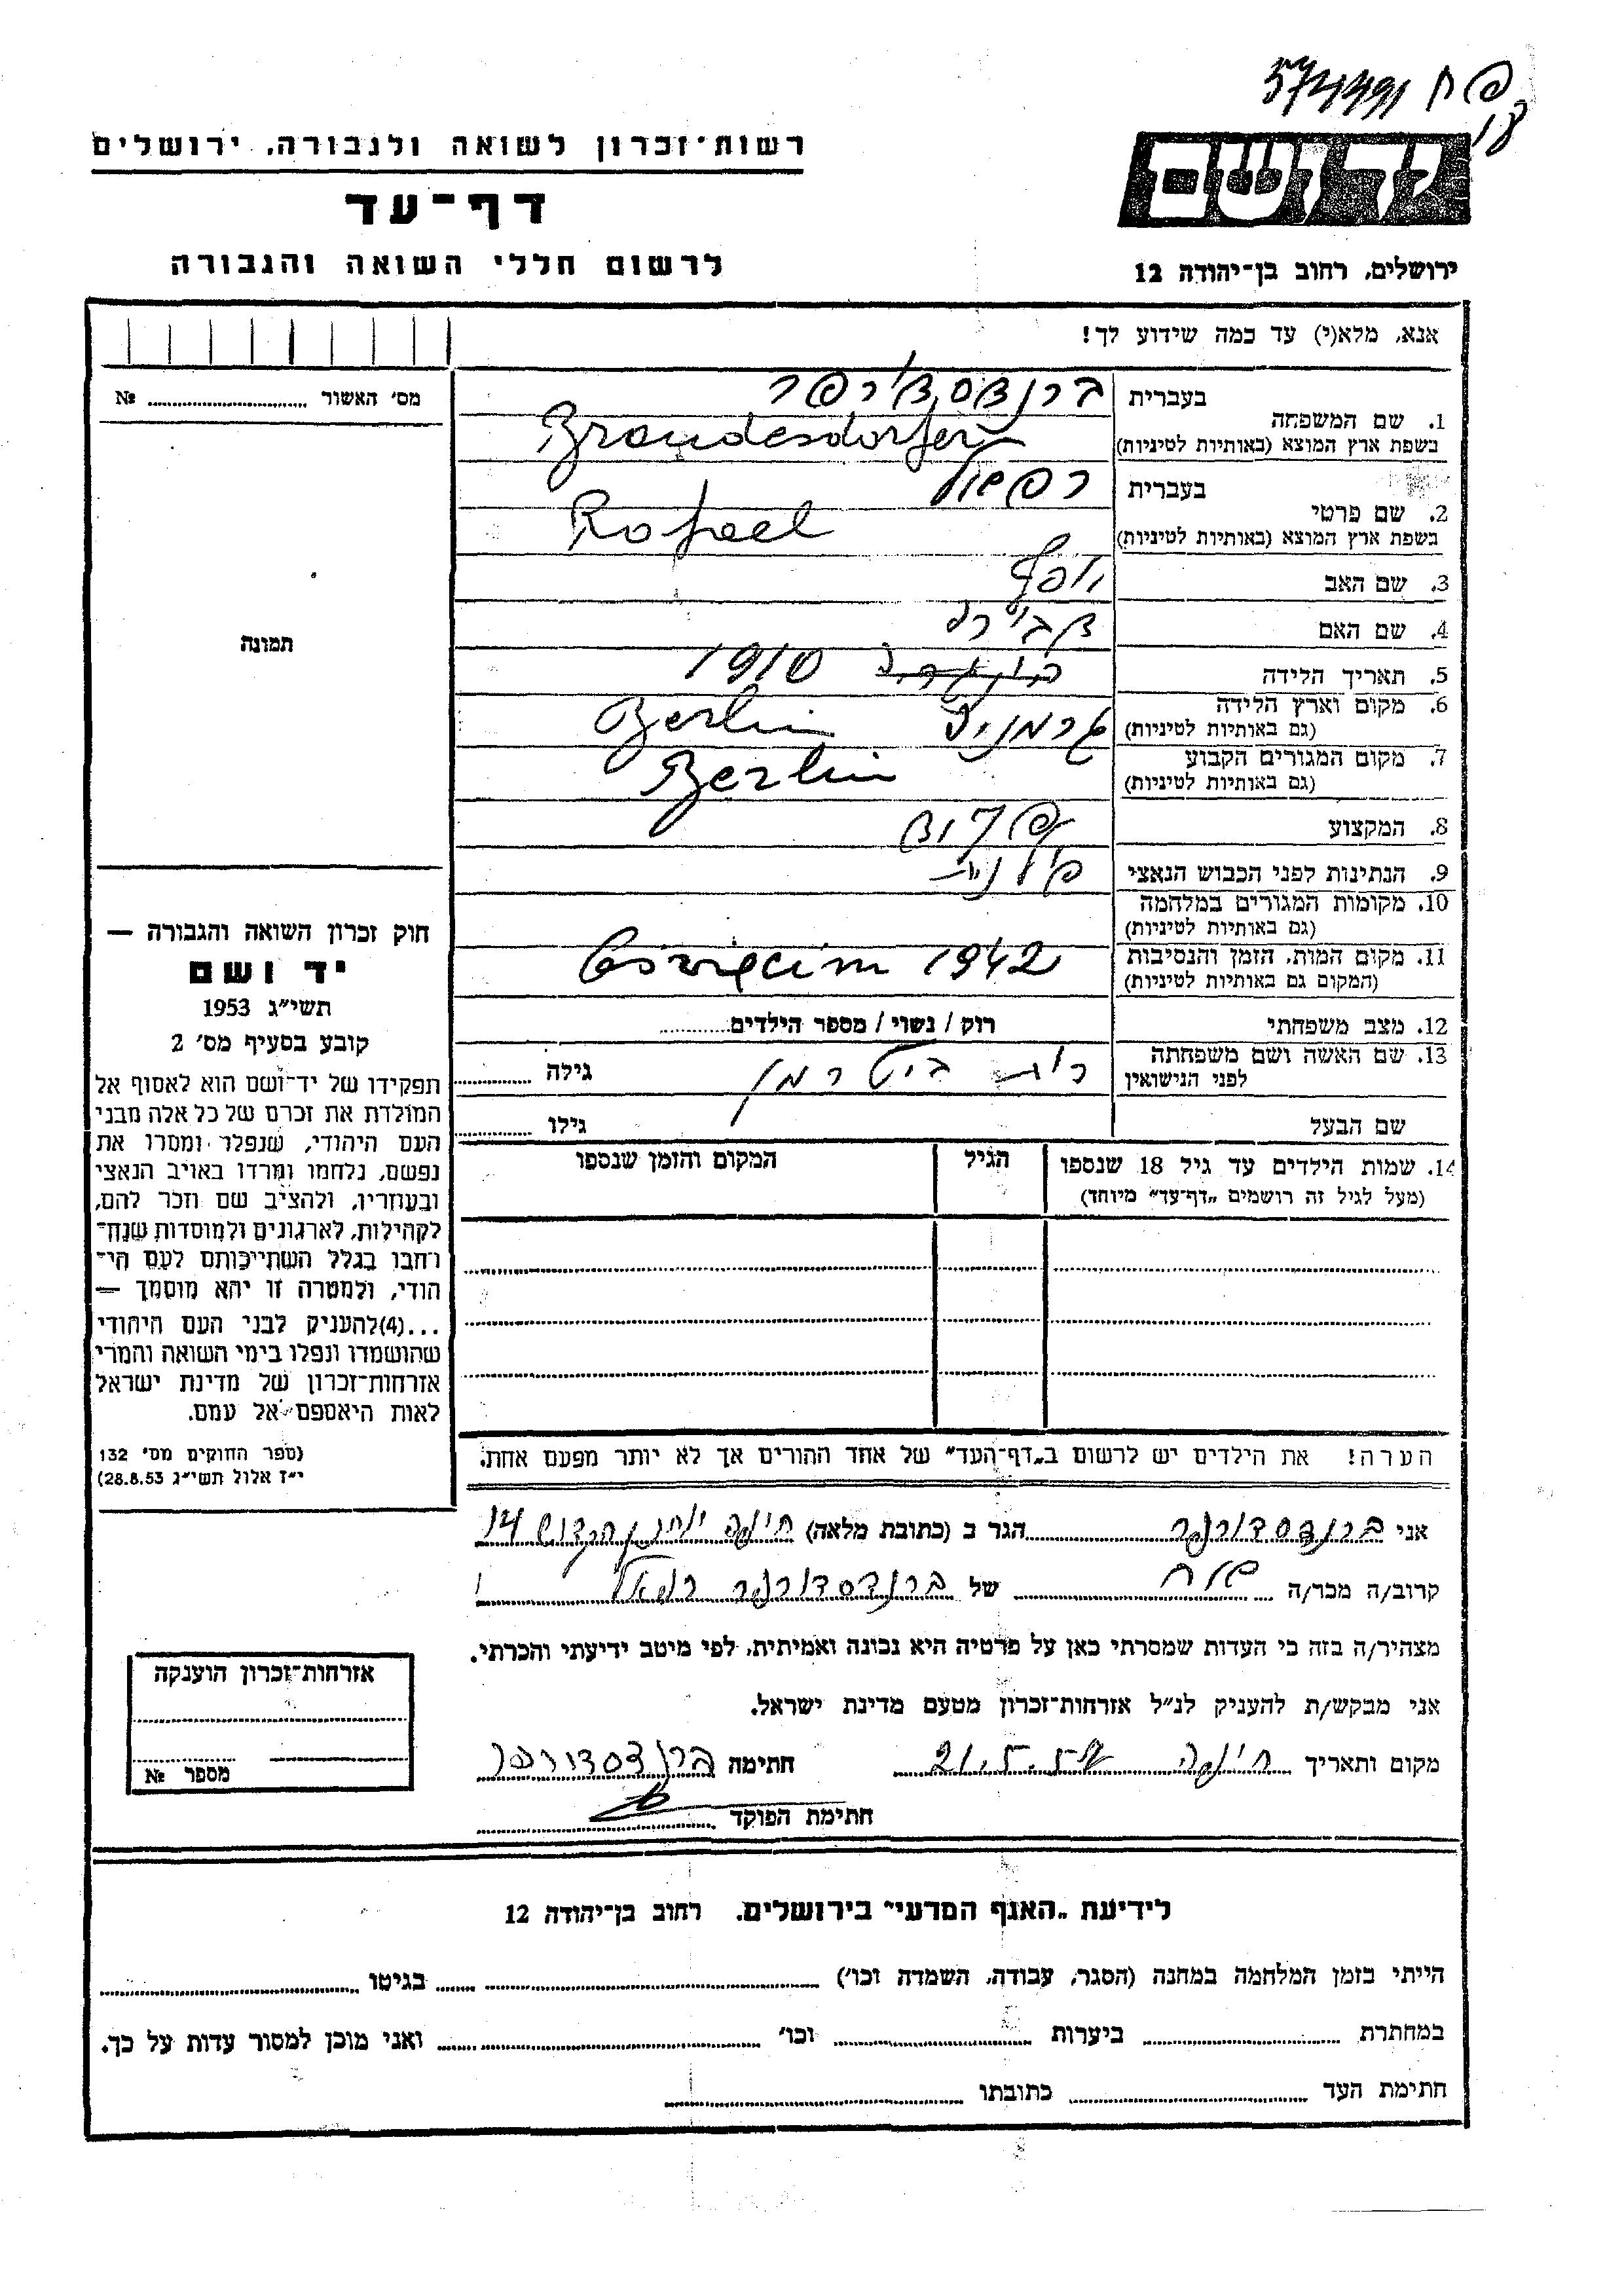 פח
574491
יד ושם
רשות־זכרון לשואה ולגבורה, ירושלים
דף־עד
לרשום חללי השואה והגבורה
ירושלים, רחוב בן־יהודה 12
אנא, מלא(י) עד כמה שידוע לך!
מס׳ האשור № 
1. שם המשפחה
בעברית ברנדסדורפר
בשפת ארץ המוצא (באותיות לטיניות) Brandesdorfer
2. שם פרטי
בעברית רפאל
בשפת ארץ המוצא (באותיות לטיניות) Rafael
3. שם האב
4. שם האם
5. תאריך הלידה 1910
6. מקום וארץ הלידה
(גם באותיות לטיניות) גרמניה Berlin
7. מקום המגורים הקבוע
(גם באותיות לטיניות) Berlin
8. המקצוע
9. הנתינות לפני הכבוש הנאצי פולנית
10. מקומות המגורים במלחמה
(גם באותיות לטיניות)
11. מקום המות, הזמן והנסיבות
(המקום גם באותיות לטיניות) Oświęcim 1942
12. מצב משפחתי רוק / נשוי / מספר הילדים
13. שם האשה ושם משפחתה
לפני הנישואין רות ביטרמן גילה
שם הבעל גילו
14. שמות הילדים עד גיל 18 שנספו
(מעל לגיל זה רושמים „דף־עד״ מיוחד)
הגיל
המקום והזמן שנספו
הערה! את הילדים יש לרשום ב„דף־העד״ של אחד ההורים אך לא יותר מפעם אחת.
תמונה
חוק זכרון השואה והגבורה —
יד ושם
תשי״ג 1953
קובע בסעיף מס׳ 2
תפקידו של יד־ושם הוא לאסוף אל
המולדת את זכרם של כל אלה מבני
העם היהודי, שנפלו ומסרו את
נפשם, נלחמו ומרדו באויב הנאצי
ובעוזריו, ולהציב שם וזכר להם,
לקהילות, לארגונים ולמוסדות שנח־
רחבו בגלל השתייכותם לעם הי־
הודי, ולמטרה זו יהא מוסמך —
...(4)להעניק לבני העם היהודי
שהושמדו ונפלו בימי השואה והמרי
אזרחות־זכרון של מדינת ישראל
לאות היאספם אל עמם.
(ספר החוקים מס׳ 132
י״ז אלול תשי״ג 28.8.53)
אני ברנדסדורפר הגר ב (כתובת מלאה) חיפה יוחנן הקדוש 14
קרוב/ה מכר/ה אח של ברנדסדורפר רפאל
מצהיר/ה בזה כי העדות שמסרתי כאן על פרטיה היא נכונה ואמיתית, לפי מיטב ידיעתי והכרתי.
אני מבקש/ת להעניק לנ״ל אזרחות־זכרון מטעם מדינת ישראל.
מקום ותאריך חיפה חתימה ברנדסדורפר
חתימת הפוקד
אזרחות־זכרון הוענקה
מספר №
לידיעת „האגף המדעי״ בירושלים, רחוב בן־יהודה 12
הייתי בזמן המלחמה במחנה (הסגר, עבודה, השמדה וכו׳) בגיטו
במחתרת ביערות וכו׳ ואני מוכן למסור עדות על כך.
חתימת העד כתובתו